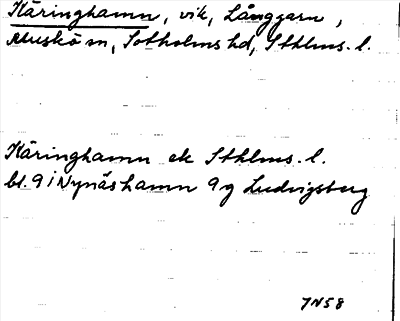 Käringhamn, vik, Långgarn,
Muskö sn, Sotholms hd, Sthlms. l.
Käringhamn ek Sthlms. l.
bl. 9 I Nynäshamn 9 g Ludvigsberg
JN58